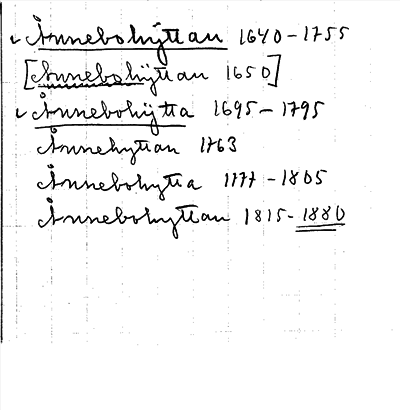 ✓ Ånnebohÿttan 1640-1755
[Ånnebohÿttan 1650]
✓ Ånnebohÿtta 1695-1795
Ånnehyttan 1763
Ånnebohytta 1777-1805
Ånnebohyttan 1815-1880